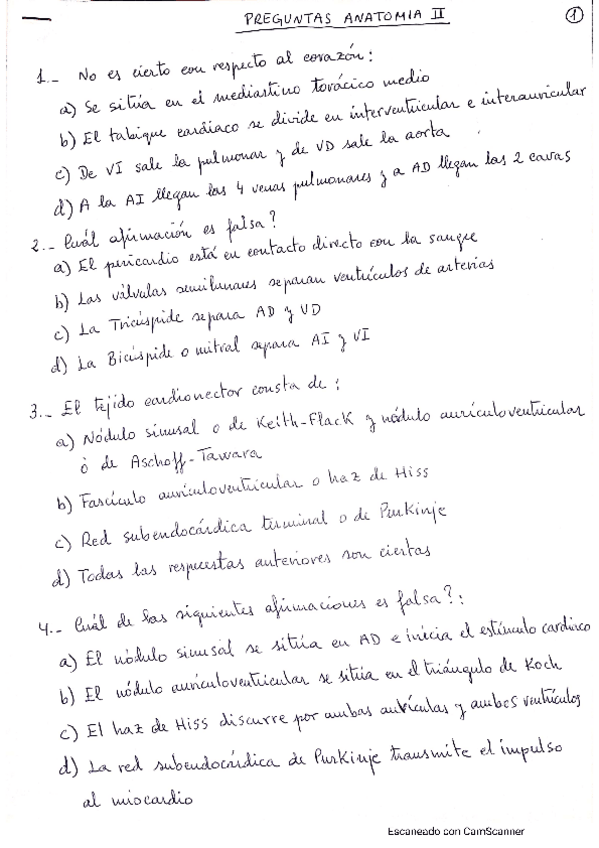 PREGUNTAS ANATOMIA II
1
1.- No es cierto con respecto al corazón:
a) Se sitúa en el mediastino torácico medio
b) El tabique cardiaco se divide en interventricular e interauricular
c) De VI sale la pulmonar y de VD sale la aorta
d) A la AI llegan las 4 venas pulmonares y a AD llegan las 2 cavas
2.- Cuál afirmación es falsa?
a) El pericardio está en contacto directo con la sangre
b) Las válvulas semilunares separan ventrículos de arterias
c) La Tricúspide separa AD y VD
d) La Bicúspide o mitral separa AI y VI
3.- El tejido cardionector consta de:
a) Nódulo sinusal o de Keith-Flack y nódulo auriculoventricular
ò de Aschoff-Tawara
b) Fascículo auriculoventricular o haz de Hiss
c) Red subendocárdica terminal o de Purkinje
d) Todas las respuestas anteriores son ciertas
4.- Cuál de las siguientes afirmaciones es falsa?:
a) El nódulo sinusal se sitúa en AD e inicia el estímulo cardíaco
b) El nódulo auriculoventricular se sitúa en el triángulo de Koch
c) El haz de Hiss discurre por ambas aurículas y ambos ventrículos
d) La red subendocárdica de Purkinje transmite el impulso
al miocardio
Escaneado con CamScanner